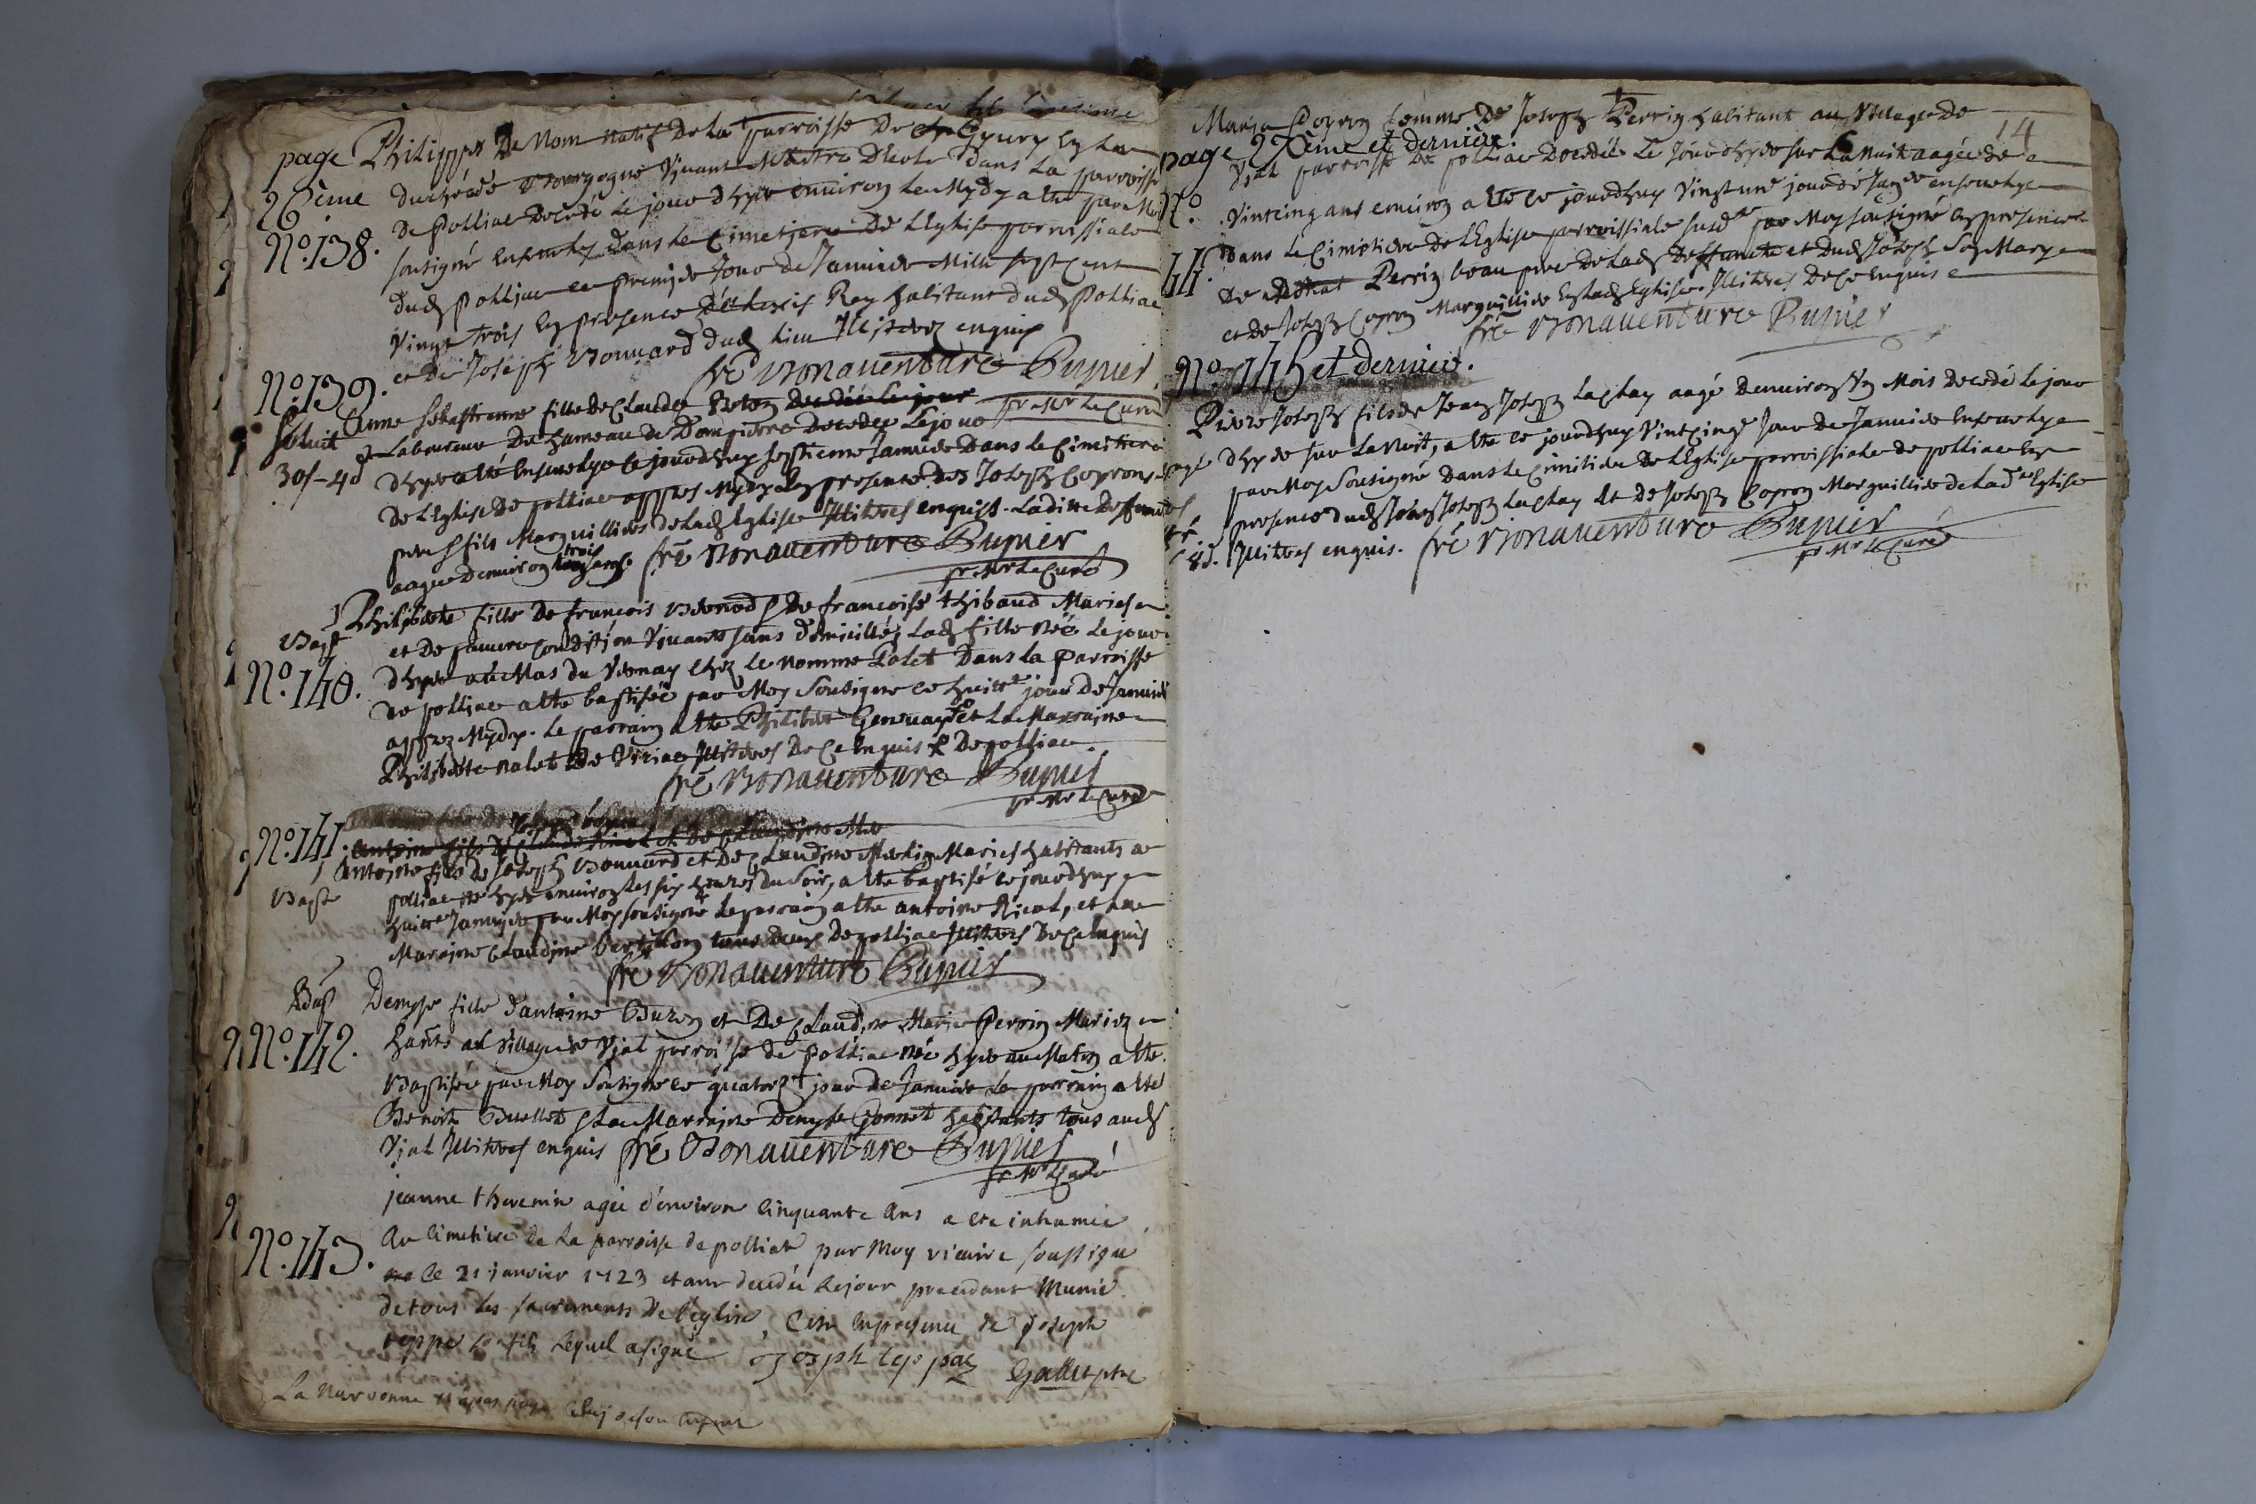 page Philippes De Nom natif De La parroisse De Gyury En La
26ème Duché de Bourgogne Vivant Maitre D'ecole Dans La parroisse
De Polliac Decedé Le jour d'hyer environ Le Mydy a été par Moy
N°.138. soutigné Enseuely Dans Le Cimetiere De L'Eglise parroissiale
Dud. Polliac ce premier Jour de Januier Mille sept Cent
Vingt trois En presence D'alexis Rey habitant dud. Polliac
et De Joseph Bonnard dud. Lieu Illiteréz enquis
fré Bonauenture Bupuier
pr. Mr Le Curé
N°.139. Anne Sebastienne fille De Claude Decedée Le jour
soluit Laboureur Du hameau de Dompierre Decedée Le jour
30s-4d d'hyer a été Enseuelye Ce jourd'huy septieme Januier Dans Le Cimitiere
De L'Eglise De polliac appres Mydy En presence des Joseph Copron
pere & fils Marguilliers de Lad. Eglise Illiterés enquis. Ladite Deffuncte
aagee Denuiron trois ans. fré Bonauenture Bupuier
pr. Mr Le Curé
Philiberte fille De françois & De francoise thibaud Mariés
Bapt et De pauure Condition Viuants sans domicilléz Lad. fille Née Le jour
N°.140. d'hyer au Mas du Vernay Chez Le nomme Palet Dans La parroisse
De polliac a été baptisée par Moy Soutigné ce huitte jour De Januier
apprez Mydy. Le parrain a été Philibert Geruay et La Marraine
Philiberte Palet De Viriac Illiterés De Ce Enquis De polliac
fré Bonauenture Bupuier
pr. Mr Le Curé
N°.141. Antoine fils De
Antoine fils de Joseph Bonnard et De Claudine Merlin Mariés habitants a
Bapt polliac né hyer enuiron Les six heures du Soir, a été baptisé ce jourd'huy
huitte Januier par Moy soutigné Le parrain a été antoine Ricol, et La
Maraine Claudine bertillon tous deux De polliac Illiterés De Ce Enquis
fré Bonauenture Bupuier
Bap Denyse fille d'antoine Buron et De Claudine Marie Perrin Mariez
N°.142. habts au Village de Vial parroisse de polliac née hyer au Matin a été
Baptisée par Moy Soutigné ce quatorze jour de Januier Le parrain a été
Benoit Buellet & La Marraine Denyse Gonnet habitants tous aud.
Vial Illiterés enquis fré Bonauenture Bupuier
pr. Mr Le Curé
jeanne thevenin agée d'environ Cinquante Ans a été inhumée
N°.143. Au Cimetiere de La parroisse de polliat par Moy vicaire soussigné
ce 21 janvier 1723 etant decedée Le jour precedant Munie
de tous Les sacrements De L'eglise, Cest En presence de Joseph
son fils Lequel a signé
Gallet ptre
La
Marie Copron femme De Joseph Perrin habitant au Village de
page 27ème et dernière. 14
Vial parroisse De polliac Decedée Le Jour d'hyer sur La Nuit aagée de
N°. Vintcinq ans enuiron a été ce jourd'huy Vingt une jour de Januier enseuelye
44. Dans Le Cimetiere De L'Eglise parroissiale susd. par Moy soutigné En presence
De Perrin beau pere De Lad. Deffuncte et Dud. Joseph Son Mary
et De Joseph Copron Marguillier En Lad. Eglise. Illiterés De Ce Enquis
fré Bonauenture Bupuier
N°. 145 et dernier.
Pierre Joseph fils de Jean Joseph Laplay aagé Denuiron Un Mois Decedé Le jour
d'hyer sur La Nuit, a été ce jourd'huy Vintcinqe Jour de Januier Enseuelye
par Moy Soutigné Dans Le Cimitiere De L'Eglise parroissiale de polliac En
presence dud. Jean Joseph Laplay et De Joseph Copron Marguillier de Lad. Eglise
Illiterés enquis. fré Bonauenture Bupuier
pr. Mr Le Curé